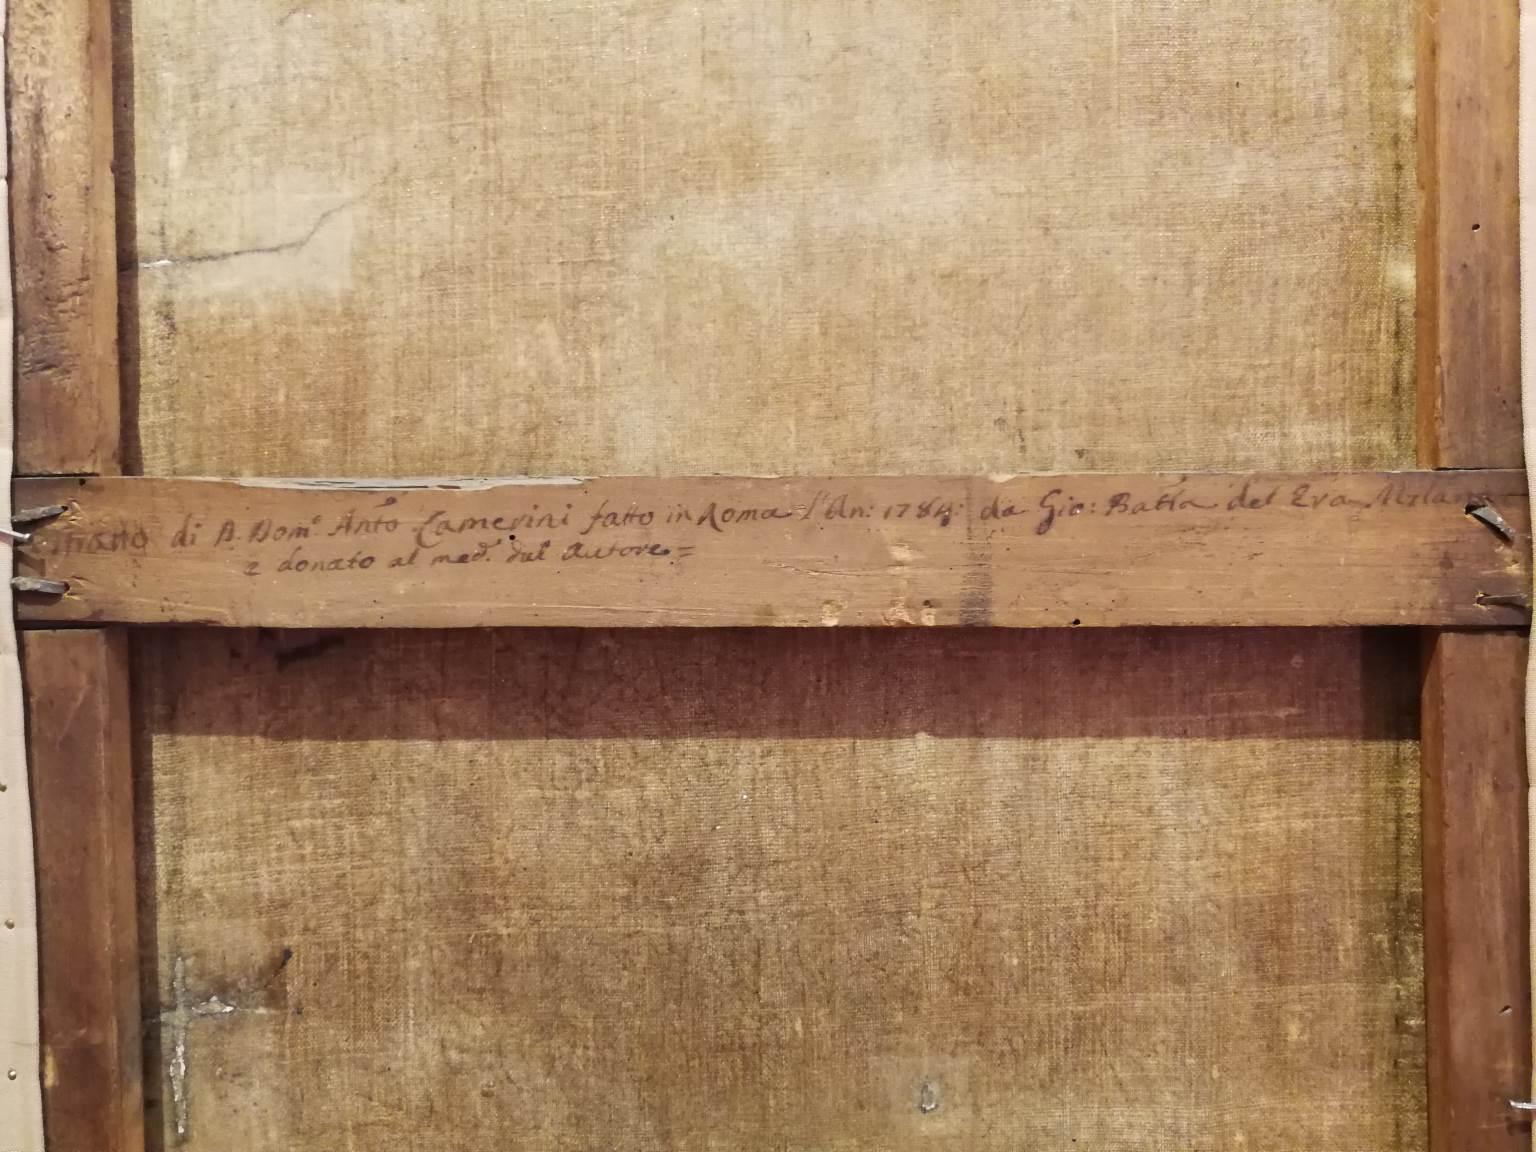 di D. Dom.º Ant.º Camerini fatto in Roma l'An: 1784: da Gio: Batta del Era Milan
e donato al med.º dal Autore =